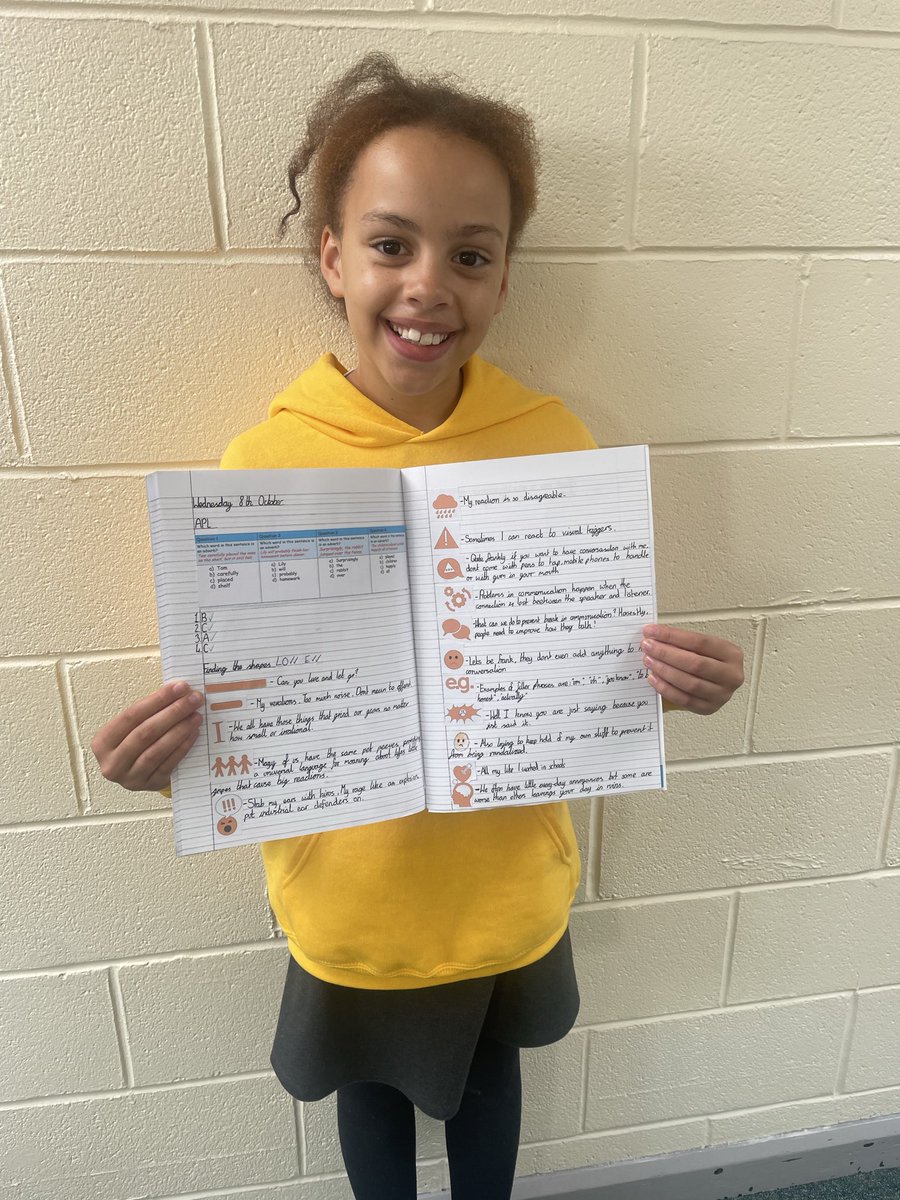 Wednesday 8th October
APL
Question 1
Question 2
Question 3
Question 4
Which word in this sentence is an adverb?
Tom carefully placed the
a) Tom
b) carefully
c) placed
d) shelf
Which word in this sentence is an adverb?
Lily will probably finish her homework before dinner.
a) Lily
b) will
c) probably
d) homework
Which word in this sentence is an adverb?
Surprisingly, the rabbit
a) Surprisingly
b) the
c) rabbit
d) over
1 B
2 C
3 A
4 C
Finding the shapes LO// E//
- Can you live and let go?
- My variations. Too much noise. Dont mean to offend.
- We all have those things that grind our gears no matter
how small or irrational.
- Many of us have the same pet peeves,
a universal language for moaning about
gripes that cause big reactions.
- Stab my ears with My rage like an
put industrial ear defenders on.
- My reaction is so disagreable.
- Sometimes I can react to visual triggers.
- Quite frankly if you want to have conversation with me
dont come with pens to tap, mobile phones to handle
or with gum in your mouth
- Problems in communication happen when the
connection is lost between the speaker and listener.
- What can we do to prevent break in communication? Honestly,
people need to improve how they talk!
- Lets be frank, they dont even add anything to
conversation
e.g. - Examples of filler phrases are "um", "uh", "you know",
"actually"
- Well I know you are just saying because you
just said it.
- Also trying to keep hold of my own stuff to prevent it
from being vandalized.
- All my life I worked in schools
- We often have little every-day annoyances but some are
worse than others leaving your day in ruins.